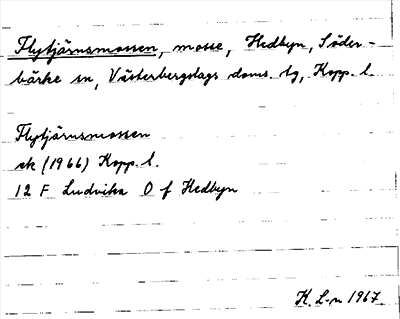 Flytjärnsmossen, mosse, Hedbyn, Söder-
bärke sn, Västerbergslags doms. tg, Kopp. l.
Flytjärnsmossen
ek (1966) Kopp. l.
12 F Ludvika O f Hedbyn
K. L-n 1967